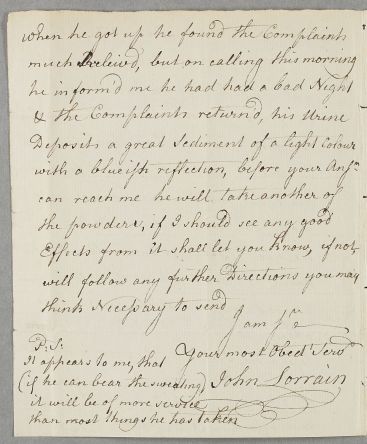 when he got up he found the Complaints
much Releiv'd, but on calling this morning
he inform'd me he had had a bad Night
& the Complaints return'd, his Urine
Deposits a great Sediment of a light Colour
with a blueish reflection, before your Ansr.
can reach me he will take another of
the powders, if I should see any good
Effects from it shall let you know, if not,
will follow any further Directions you may
think Necessary to send
I am Sr.
Your most Obedt. Servt.
John Lorrain
P.S.
It appears to me, that
(if he can bear the sweating)
it will be of more service
than most things he has taken